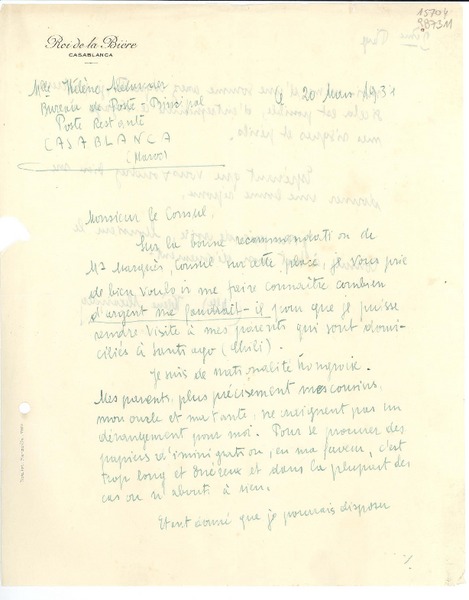 15704
98731
Roi de la Bière
CASABLANCA
Mlle Hélène
Bureau de Poste Principal
Poste Restante
CASABLANCA
(Maroc)
le 20 Mars 193
Monsieur le Consul,
Sur la bonne recommandation de
Mr Marquès, Consul sur cette place, je vous prie
de bien vouloir me faire connaître combien
d'argent me faudrait-il pour que je puisse
rendre visite à mes parents qui sont domi-
ciliés à Santiago (Chili).
Je suis de nationalité hongroise.
Mes parents, plus précisément mes cousins,
mon oncle et ma tante, ne craignent pas un
dérangement pour moi. Pour se procurer des
papiers d'immigration, en ma faveur, c'est
trop long et onéreux et dans la plupart des
cas on n'aboutit à rien.
Etant donné que je pourrais disposer